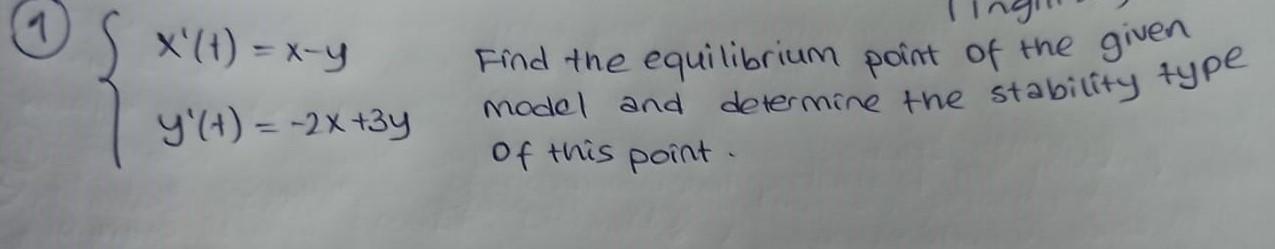 1 x'(t) = x-y Find the equilibrium point of the given
y'(t) = -2x+3y model and determine the stability type
of this point.